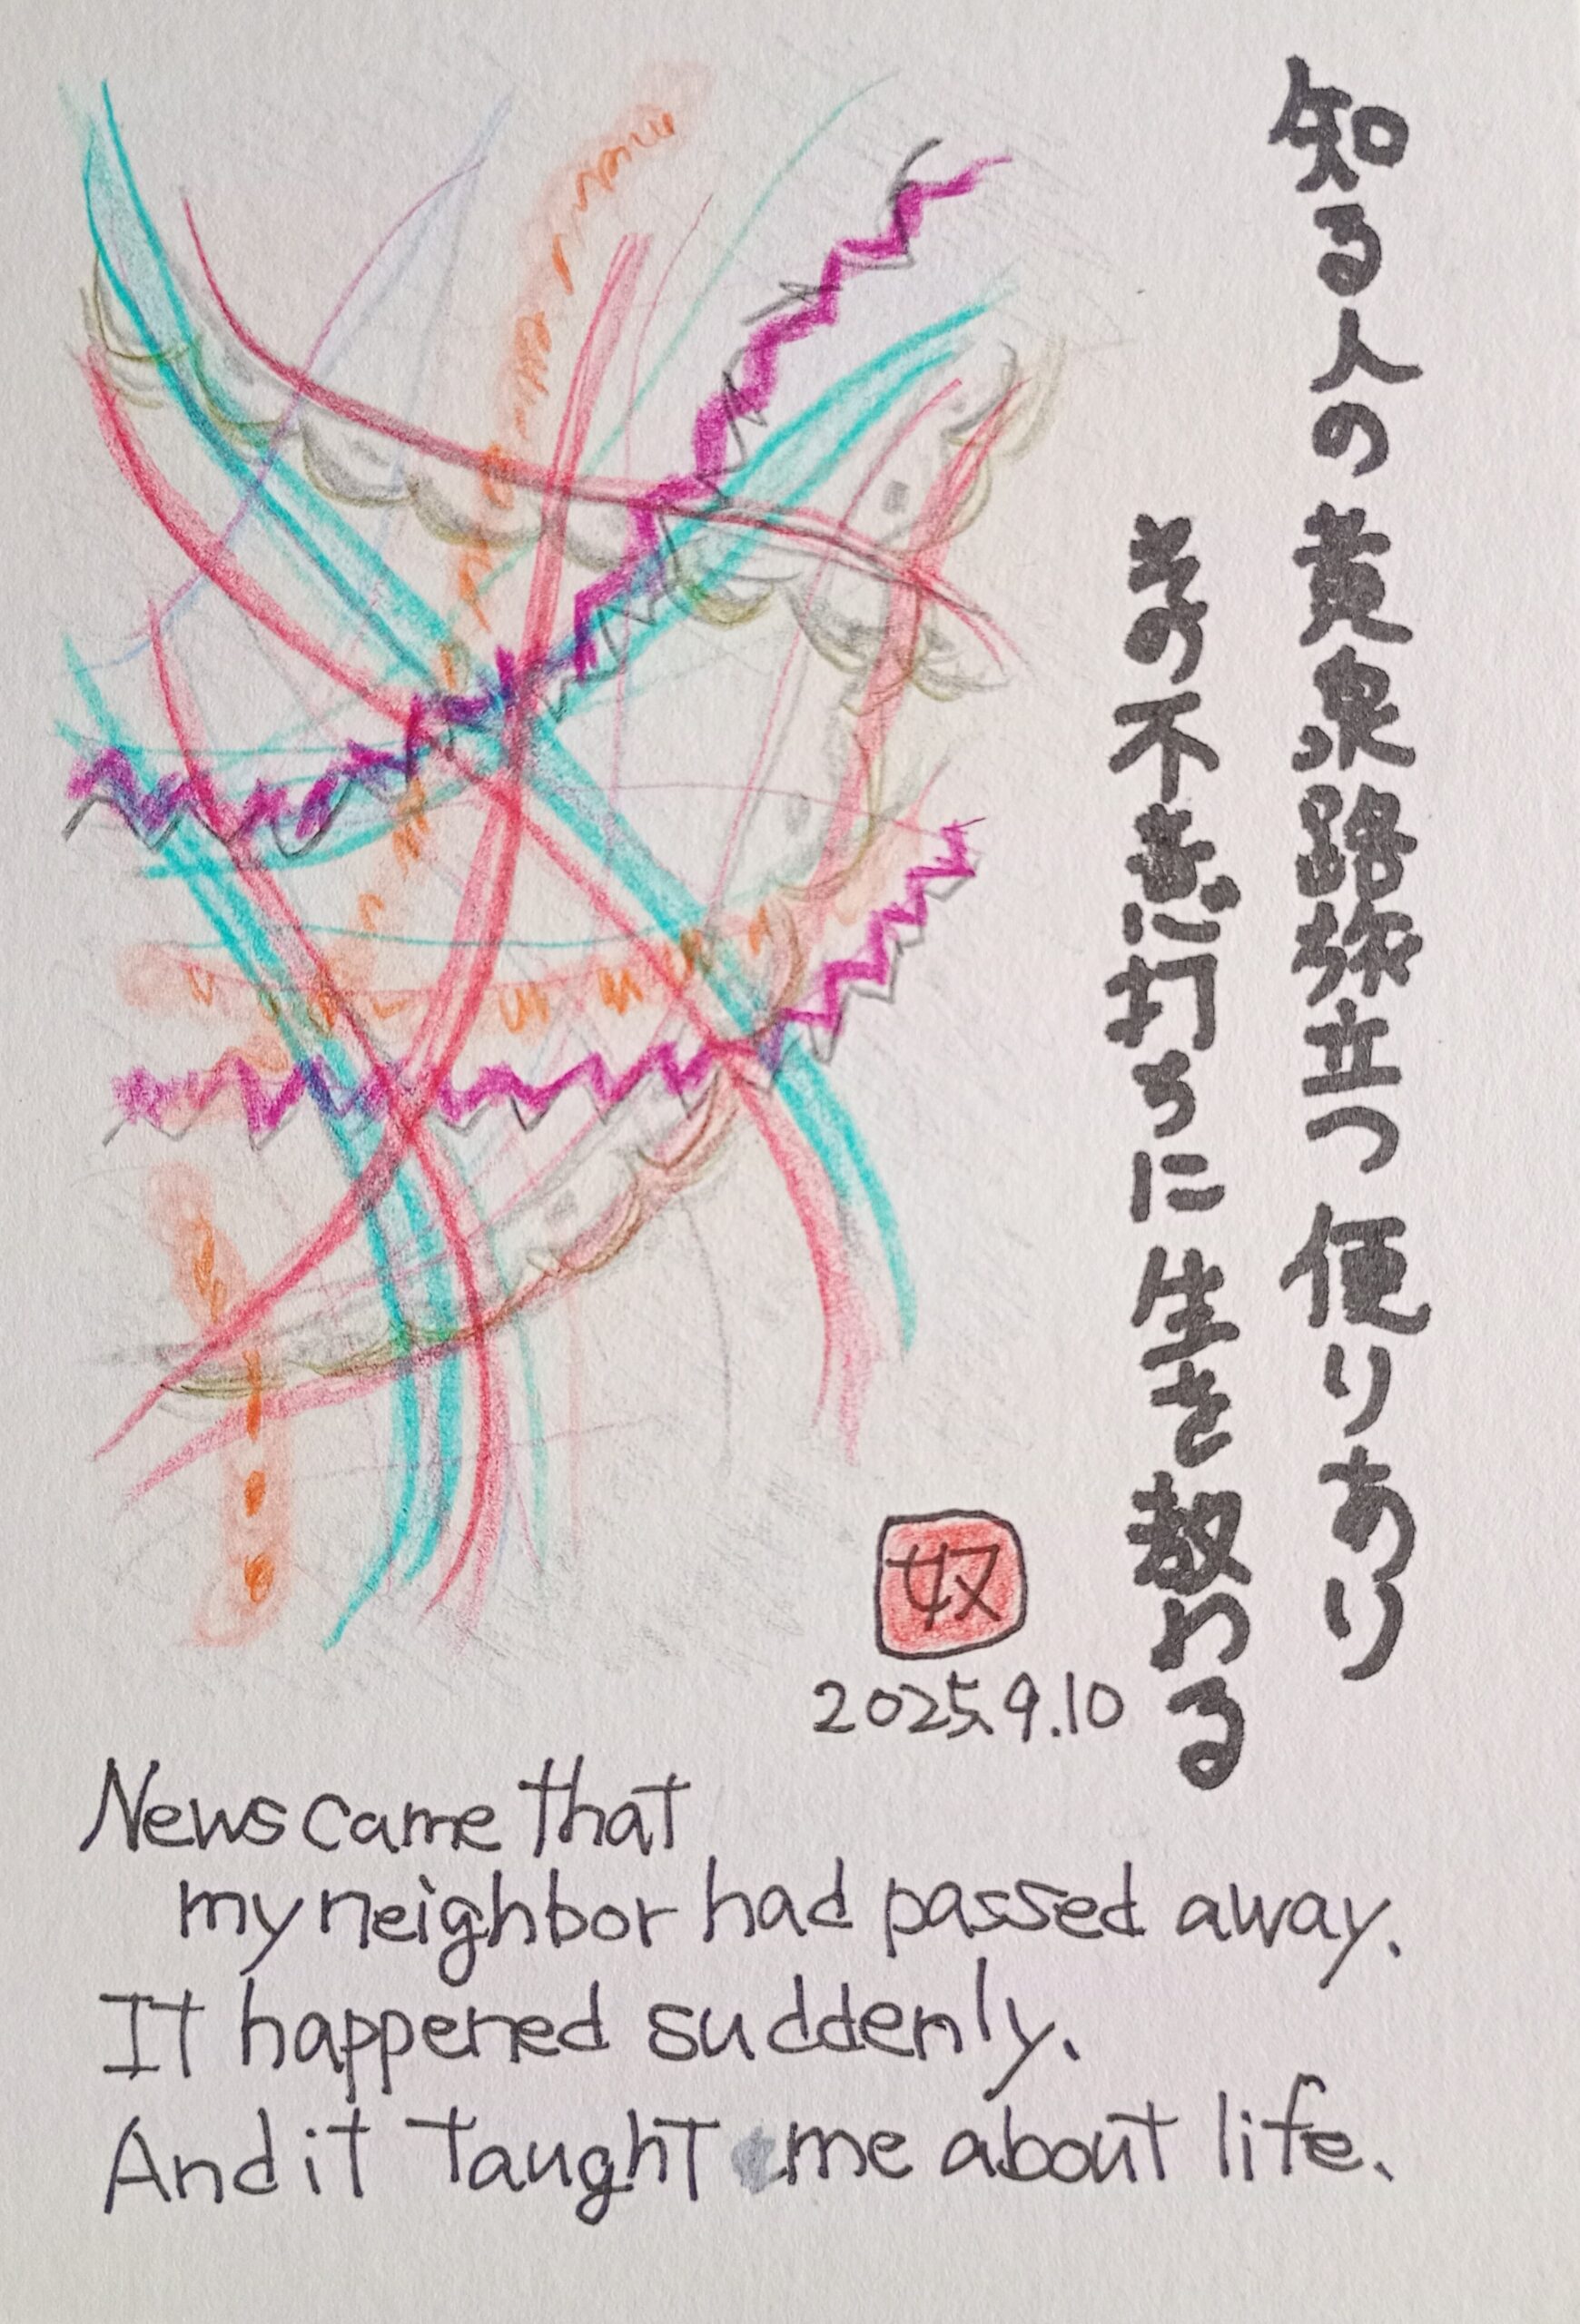 知る人の黄泉路旅立つ便りあり
その不意打ちに生き教わる
奴
2025.9.10
News came that
my neighbor had passed away.
It happened suddenly.
And it taught me about life.